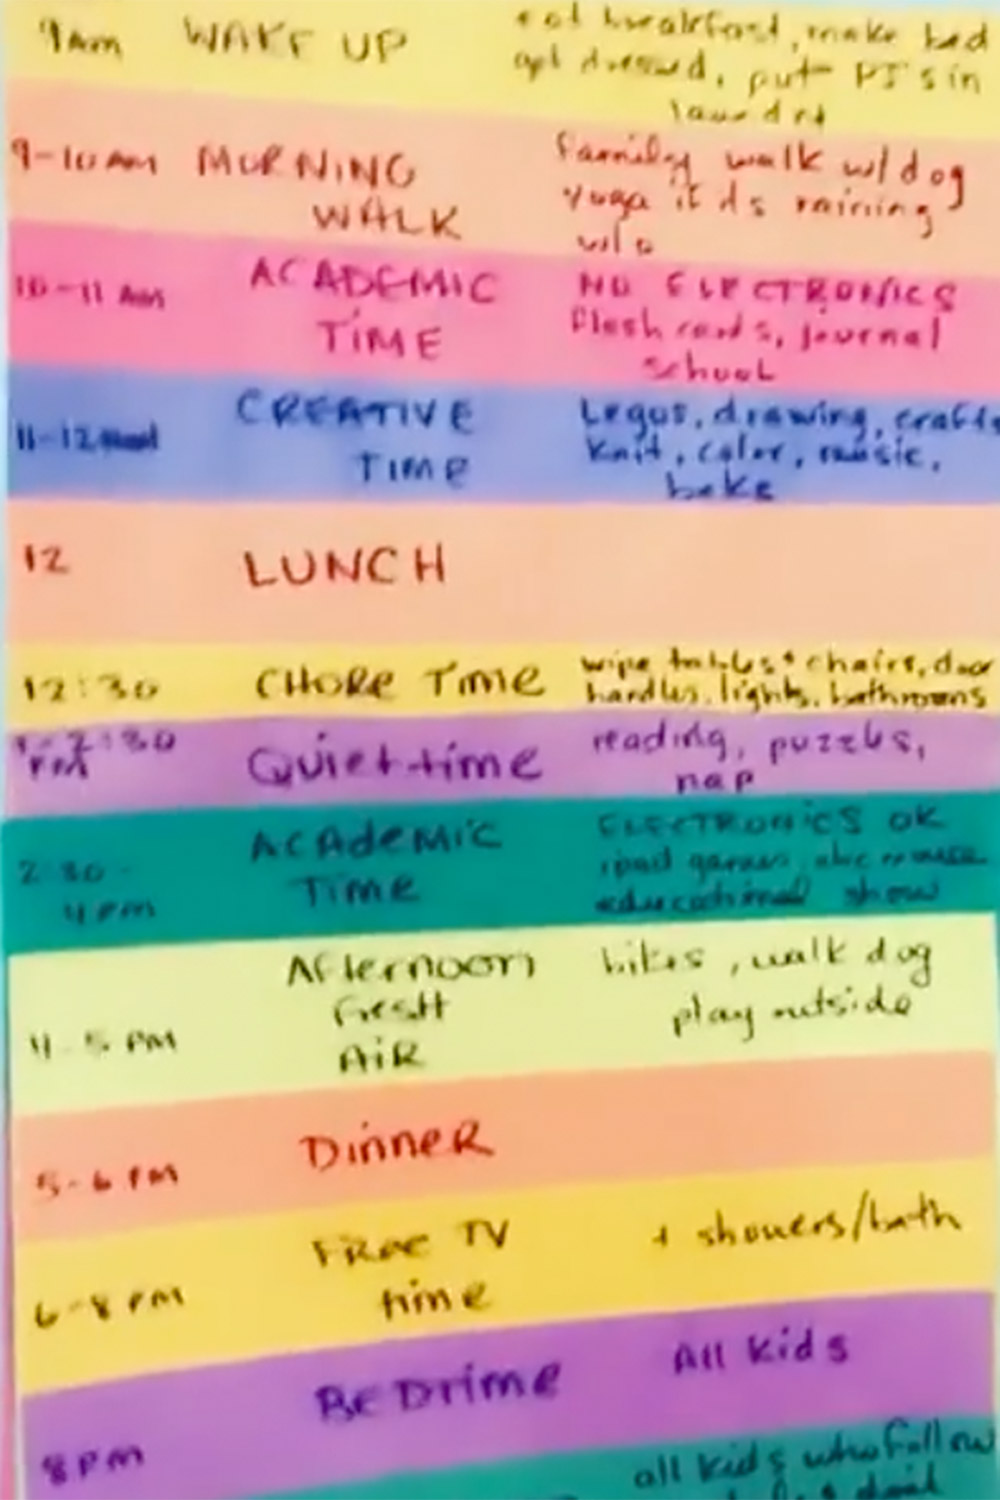 9am WAKE UP eat breakfast, make bed
get dressed, put PJ's in
laundry
9-10AM MORNING WALK family walk w/dog
yoga if it's raining
10-11 AM ACADEMIC TIME NO ELECTRONICS
flash cards, journal
school
11-12 CREATIVE TIME Legos, drawing, crafts
knit, color, music,
bake
12 LUNCH
12:30 CHORE TIME wipe tables + chairs, door
handles, lights, bathrooms
1-2:30 PM Quiet time reading, puzzles,
nap
2:30-4PM ACADEMIC TIME ELECTRONICS OK
ipad games, abc mouse
educational show
4-5 PM Afternoon FRESH AIR bikes, walk dog
play outside
5-6 PM DINNER
6-8 PM FREE TV time + showers/bath
8PM BEDTIME All kids
all kids who follow